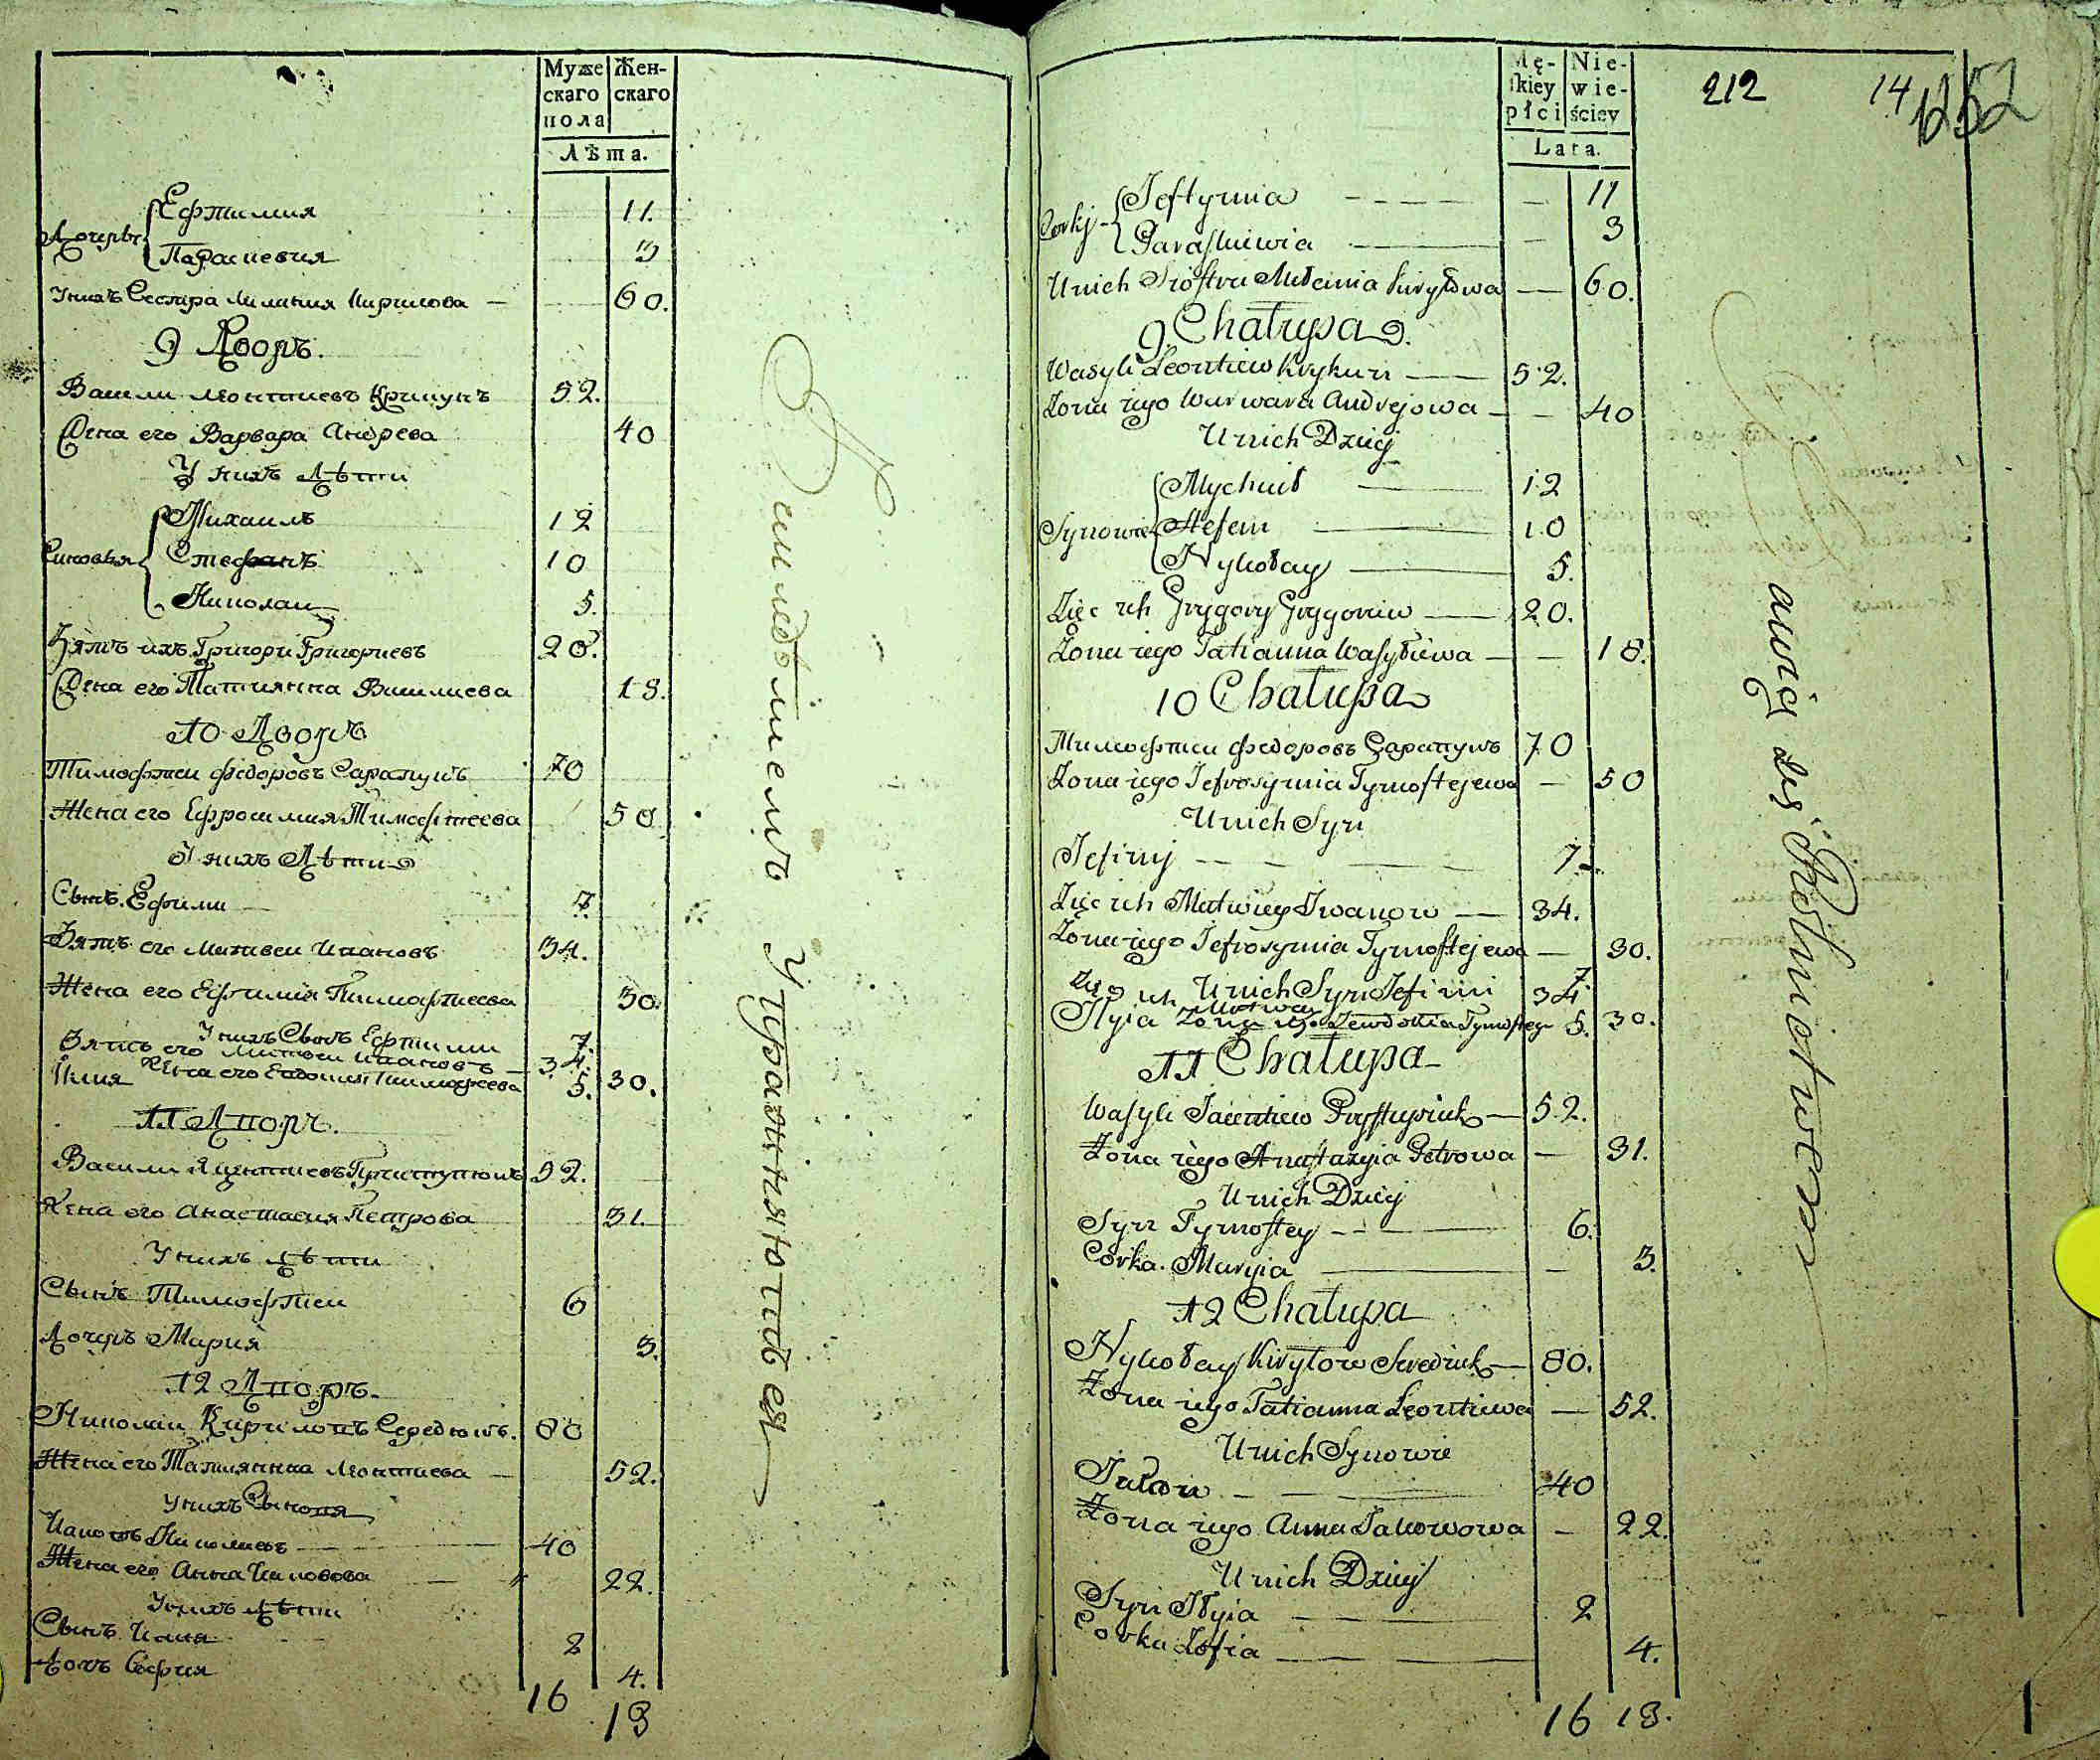 Муже
скаго
пола
Жен-
скаго
Лѣта.
Дочерѣ
Ефтимия 11.
Параскевия 3
У нихъ Сестра Миланія Кирилова — 60.
9 Дворъ.
Васили Леонтиевъ Крикунъ 52.
Жена его Варвара Андрева 40
У нихъ Дѣти
Синовья
Михаилъ 12
Стефанъ 10
Николаи 5.
Зять ихъ Григори Григориевъ 20.
Жена его Татиянна Василиева 18.
10 Дворъ
Тимофтеи Федоровъ Сарапукъ 70
Жена его Ефросиния Тимофтеева 50
У нихъ Дѣти
Сынъ Ефими 7
Зять его Матвеи Ивановъ 34.
Жена его Тимофтеева 30.
У нихъ Сынъ Ефтими 7.
Зять его Матвеи Ивановъ — 34.
Жена его Евдокия Тимофеева 30.
Илия 5.
11 Дворъ.
Васили Яцентиевъ Приступюкъ 52.
Жена его Анастасия Петрова 31.
У нихъ Дѣти
Сынъ Тимофтеи 6
Дочеръ Мария 3.
12 Дворъ.
Николаи Кириловъ Середюкъ. 80
Жена его Татиянна Леонтиева — 52.
У нихъ Сыновя
Яковъ Николаевъ — 40
Жена его Анна Яковова — 22.
У нихъ Дѣти
Сынъ Илия 2
Дочъ София 4.
16 18
Землевѣ тиемъ Упражняются
Mę-
skiey
płci
Nie-
wie-
ściey
Lata.
212 14 52
Corkj
Jeftymia — 11
Paraskiewia — 3
Unich Siostra Mełania Kiryłowa — 60.
9 Chałupa 9.
Wasyli Leontiew Krykun — 52.
Żona iego Warwara Andrejowa — 40
Unich Dziej
Synowie
Mychaił — 12
Stefan — 10
Nykołay — 5.
Zięc ich Grygory Grygoriew — 20.
Żona iego Tatianna Wasyliewa — 18.
10 Chałupa
Тимофтеи Федоровъ Сарапукъ 70
Żona iego Jefrosymia Tymoftejewa — 50
Unich Syn
Jefimj — 7.
Zięc ich Matwiey Iwanow — 34.
Żona iego Jefrosymia Tymoftejewa — 30.
Unich Syn Jefimi 7
Zięc ich Matwey 34
Żona iego Jewdokia Tymoftey 30.
Ilyia 5.
11 Chałupa
Wasyli Jacentiew Prystupiuk — 52.
Żona iego Anastazyia Petrowa — 31.
Unich Dziej
Syn Tymoftey — 6.
Córka Maryia — 3.
12 Chałupa
Nykołay Kiryłow Seredziuk — 80.
Żona iego Tatianna Leontiewa — 52.
Unich Synowie
Jakow — 40
Żona iego Anna Jakowowa — 22.
Unich Dziej
Syn Ilyia — 2
Corka Zofia — 4.
16 18.
awią się Rolnictwem